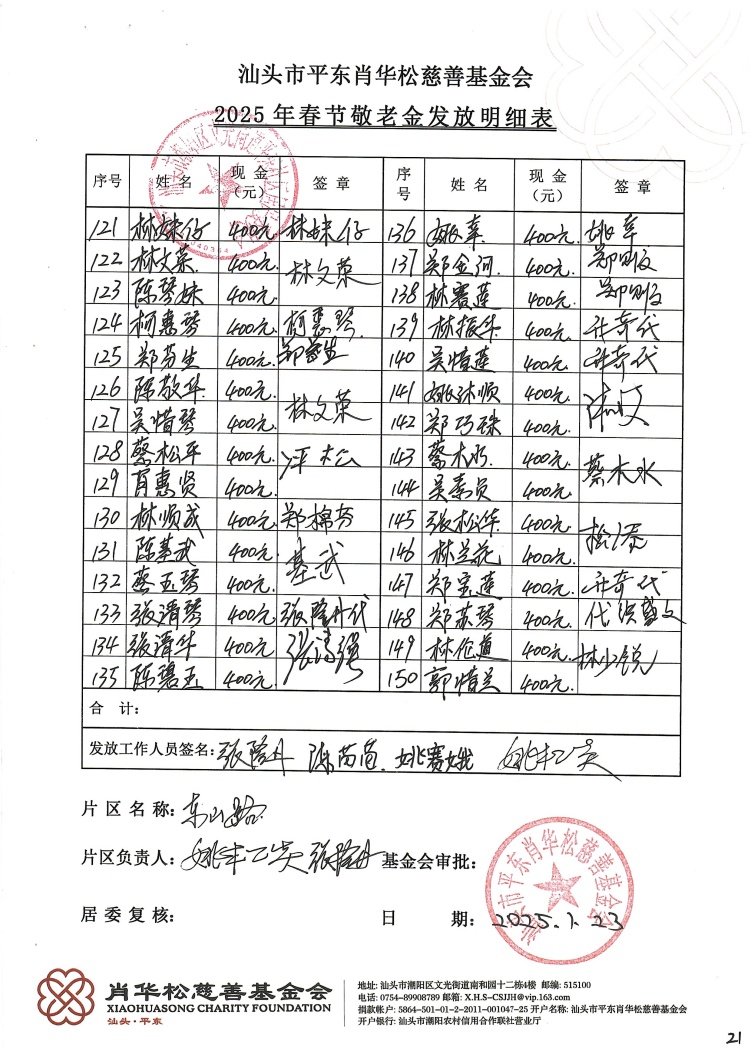 汕头市平东肖华松慈善基金会
2025年春节敬老金发放明细表
序号 姓名 现金（元） 签章 序号 姓名 现金（元） 签章
121 林妹仔 400元 林妹仔 136 姚幸 400元 姚幸
122 林文荣 400元 林文荣 137 郑金河 400元
123 陈琴妹 400元 138 林赛莲 400元
124 柯惠琴 400元 柯惠琴 139 林振华 400元
125 郑芬生 400元 郑芬生 140 吴惜莲 400元
126 陈敬华 400元 林文荣 141 姚沐顺 400元
127 吴惜琴 400元 142 郑巧珠 400元
128 蔡松平 400元 143 蔡木水 400元 蔡木水
129 肖惠贤 400元 144 吴素贞 400元
130 林顺成 400元 郑棉芬 145 张松泽 400元
131 陈基武 400元 基武 146 林兰花 400元
132 蔡玉琴 400元 147 郑宝莲 400元
133 张清琴 400元 张隆丹代 148 郑苏琴 400元
134 张清华 400元 149 林伦道 400元 林少锐
135 陈碧玉 400元 150 郭惜兰 400元
合计：
发放工作人员签名：张隆丹 姚赛娥
片区名称：东山路
片区负责人： 张隆丹 基金会审批：
汕头市平东肖华松慈善基金会
居委复核： 日期：2025.1.23
肖华松慈善基金会
XIAOHUASONG CHARITY FOUNDATION
汕头·平东
地址：汕头市潮阳区文光街道南和园十二栋4楼 邮编：515100
电话：0754-89908789 邮箱：X.H.S-CSJJH@vip.163.com
捐款帐户：5864-501-01-2-2011-001047-25 开户名称：汕头市平东肖华松慈善基金会
开户银行：汕头市潮阳农村信用合作联社营业厅
21